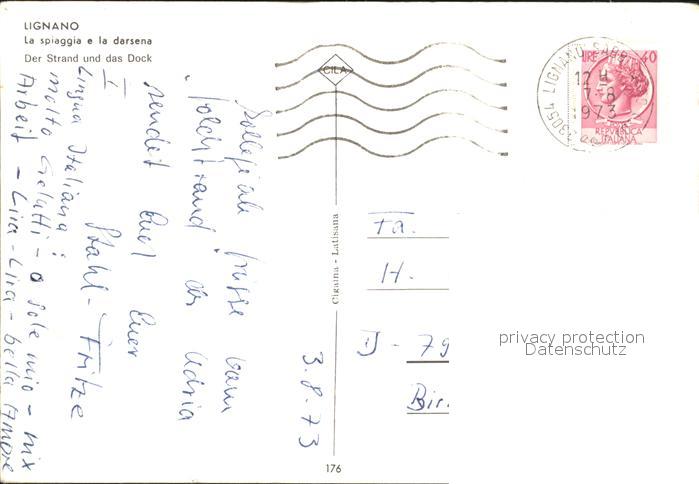 LIGNANO
La spiaggia e la darsena
Der Strand und das Dock
CILA
33054 LIGNANO SABB
12 H
7-8
1973
LIRE 40
REPUBBLICA
ITALIANA
3.8.73
Kollegiale Grüsse vom
Goldstrand der Adria
sendet Euch Euer
Stahl-Fritze
I
Lingua Italiana:
molto Gelatti - o sole mio - nix
Arbeit - Lira - Lira - bella Amore
Cigaina - Latisana
Fa.
H.
D - 79
Bir
176
privacy protection
Datenschutz